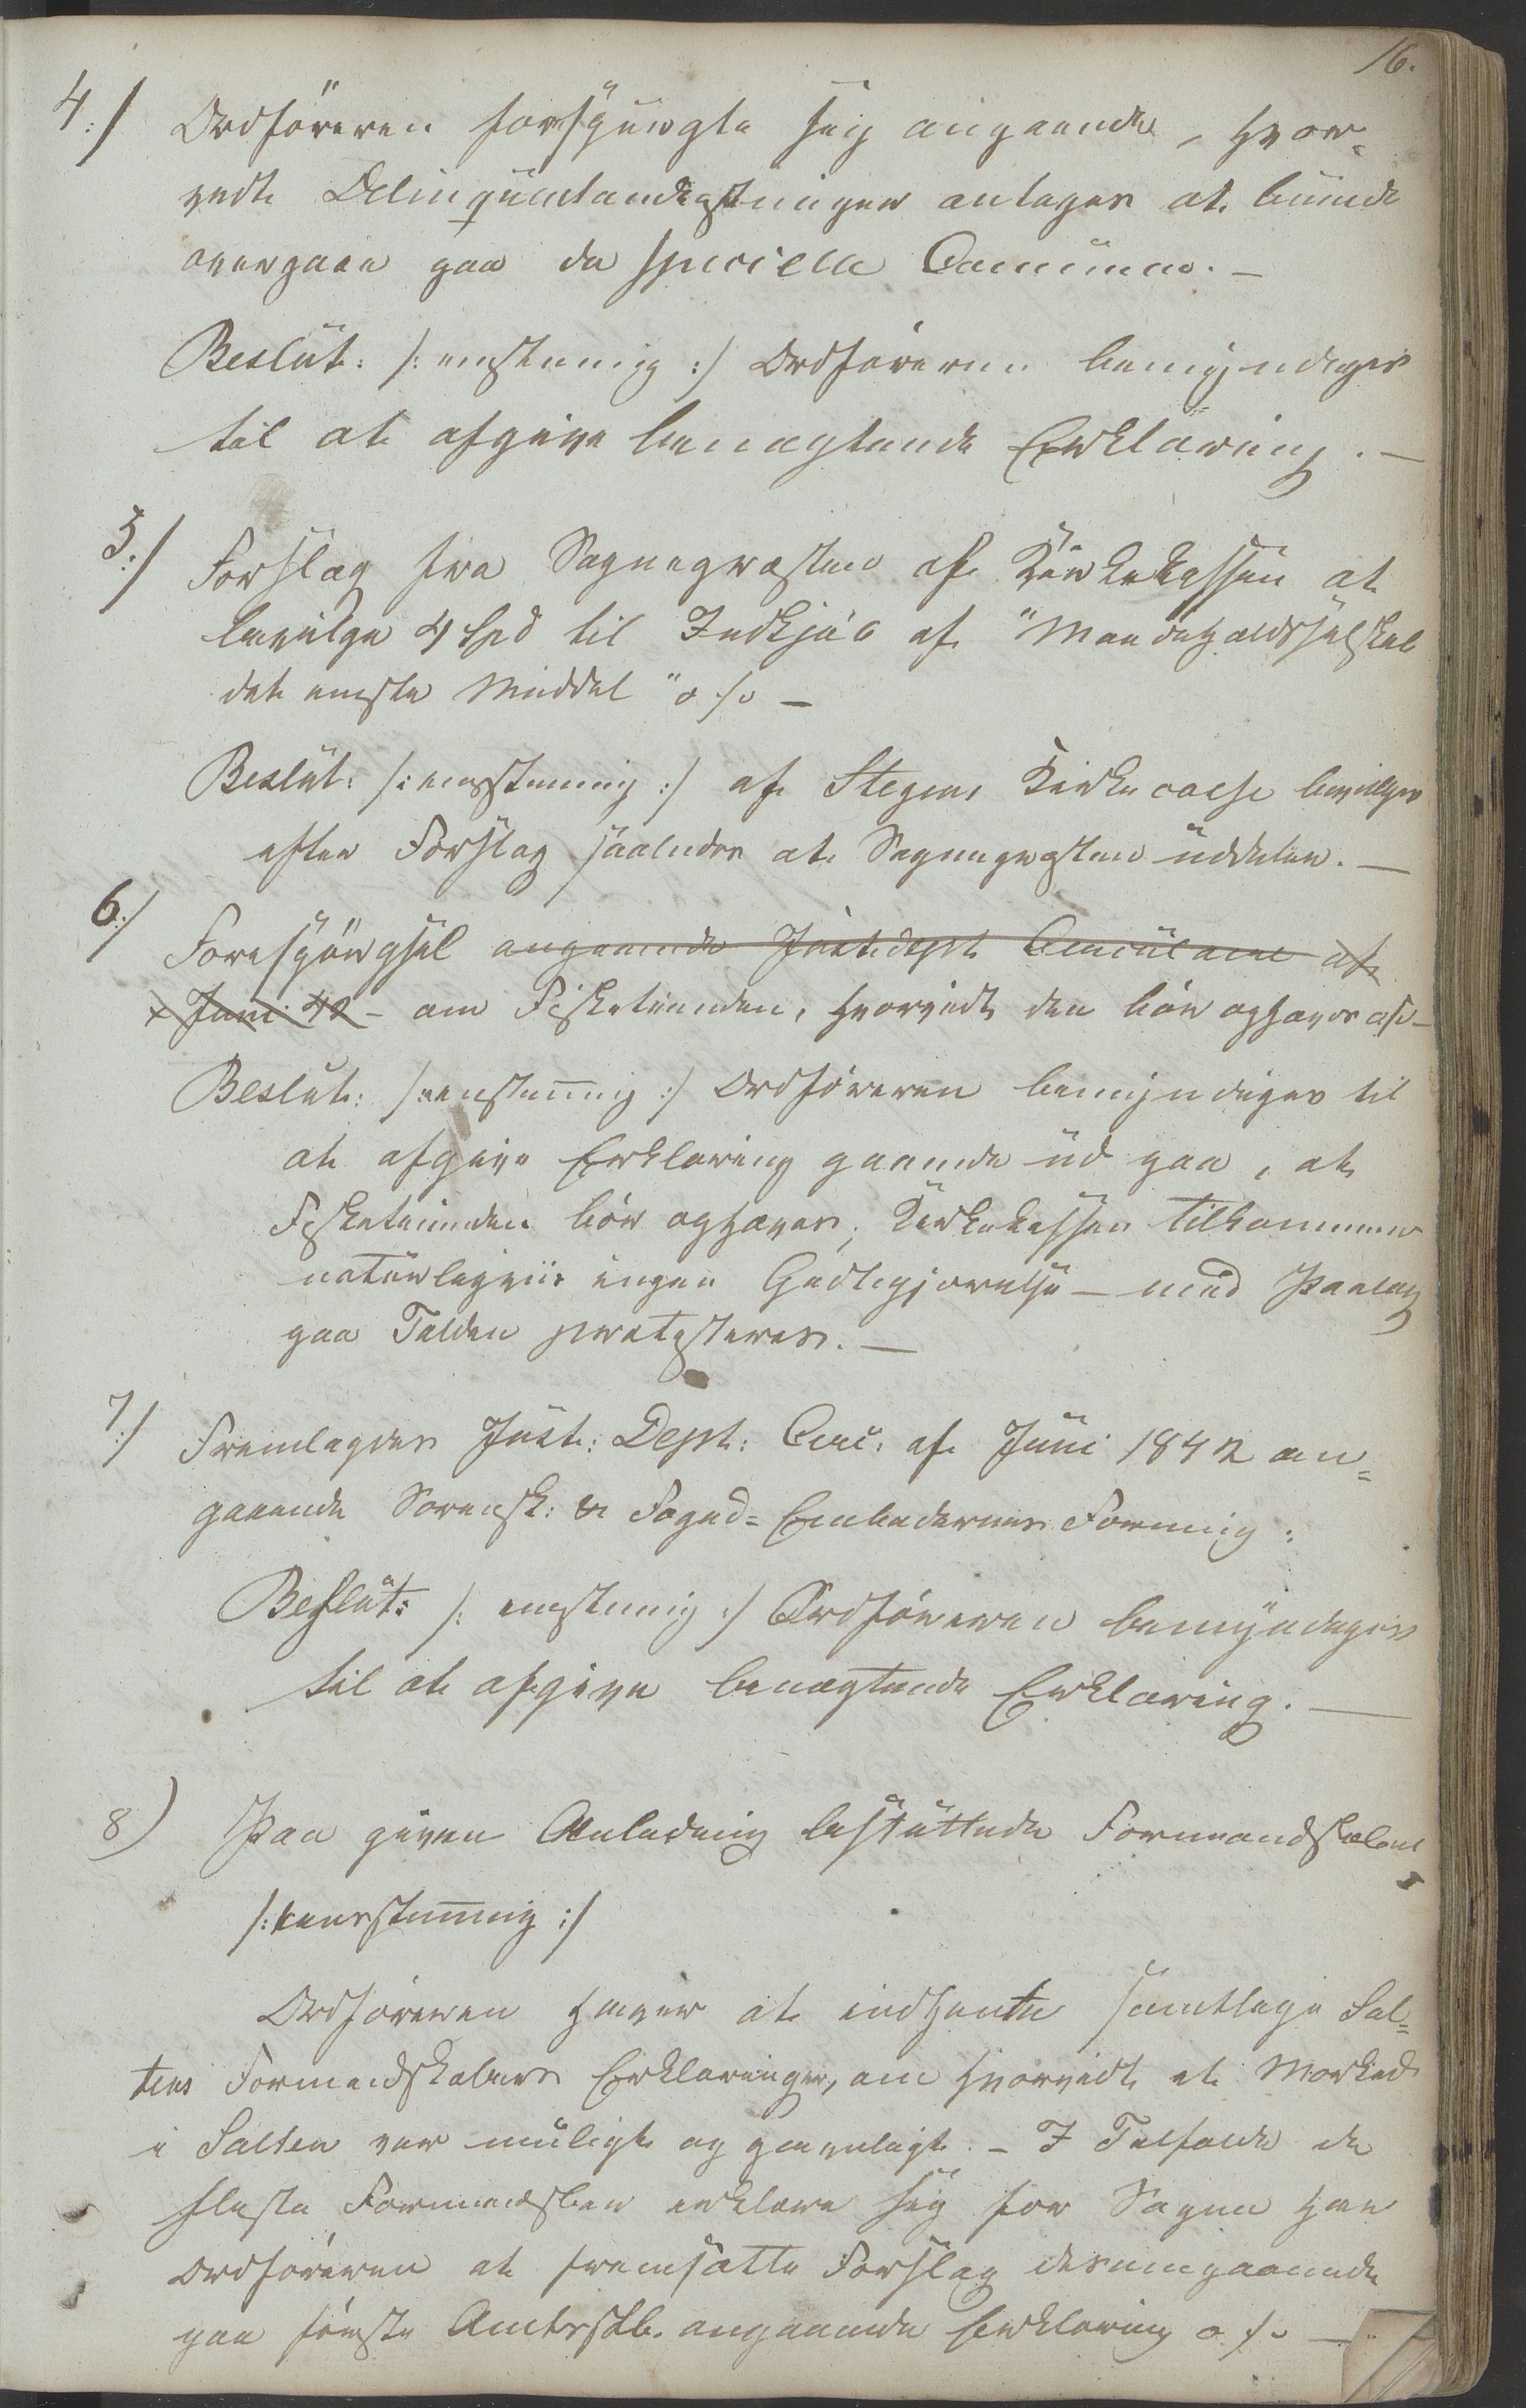 16.
4:/ Ordföreren forspurgte sig angaaende, hvor-
vidt Delinqventandgstninger antages at burde
overgaae paa de specielle Communer. —
Beslut: /: enstemig :/ Ordföreren bemyndiges
til at afgive benægtende Erklæring. —
5:/ Forslag fra Sognepræsten af Kirkekassen at
bevilge 4 Spd til Indkjöb af "Maadeholdsselskab
det eneste Middel" o/s —
Beslut: /: eenstemmig :/ af Stegens Kirkecasse bevilges
efter Forslag saaledes at Sognepresten uddeler. —
6:/ Forespörgsel angaaende Justdept Circulaire af
Juni 42 - om Fisketienden, hvorvidt den bör ophæves osv —
Beslut: /: eenstem̅ig :/ Ordföreren bemyndiges til
at afgive Erklæring gaaende ud paa, at
Fisketienden bör ophæves; Kirkekassen tilkommer
naturligviis ingen Godtgjörelse — mod Paalæg
paa Tolden protesteres. —
7:/ Fremlagdes Just: Dept: Circ: af Juni 1842 an-
gaaende Sorensk: & Foged- Embedernes Forening:
Beslut: /: enstemig :/ Ordföreren bemyndiges
til at afgive benægtende Erklæring. —
8) Paa given Anledning besluttede Formandskabet
/: eenstem̅ig :/
Ordföreren haver at indhente samtlige Sal-
tens Formandskabers Erklæringer, om hvorvidt et Marked
i Salten var muligt og gavnligt. - I Tilfælde de
fleste Formandskber erklære sig for Sagen har
Ordföreren at fremsætte Forslag desangaaende
paa förste Amtsskb. angaaende Erklæring o/s —